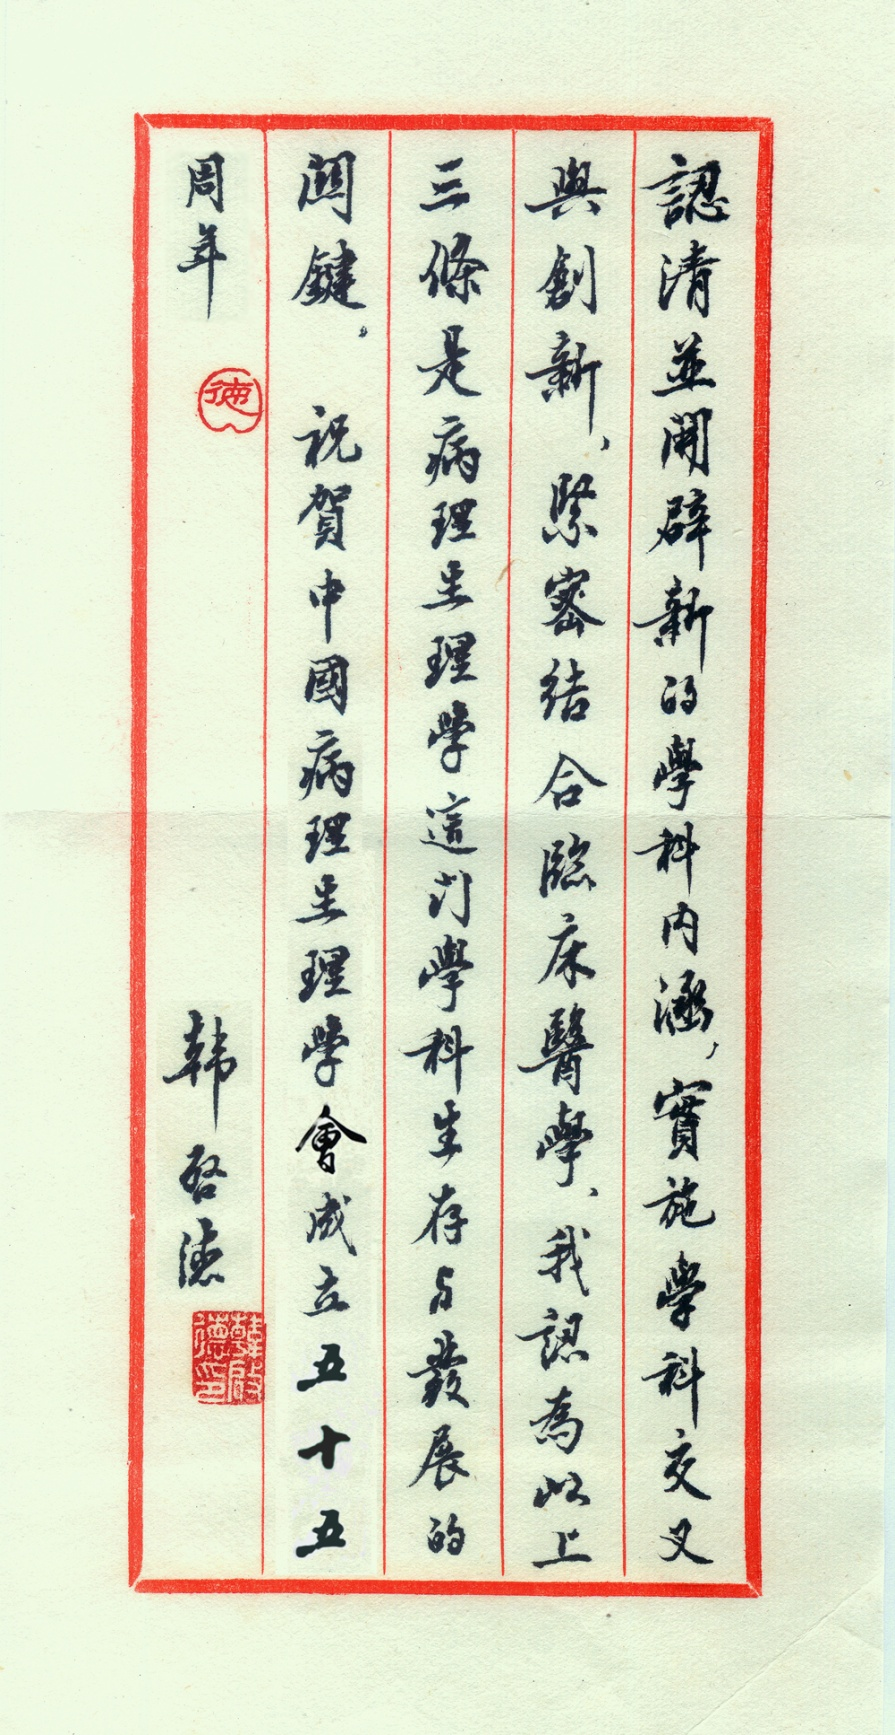 認清並開辟新的學科内涵，實施學科交叉
與創新，緊密結合臨床醫學，我認為以上
三條是病理生理學這门學科生存与發展的
関鍵。祝賀中國病理生理學會成立五十五
周年
德
韩啓德
韓啟德印